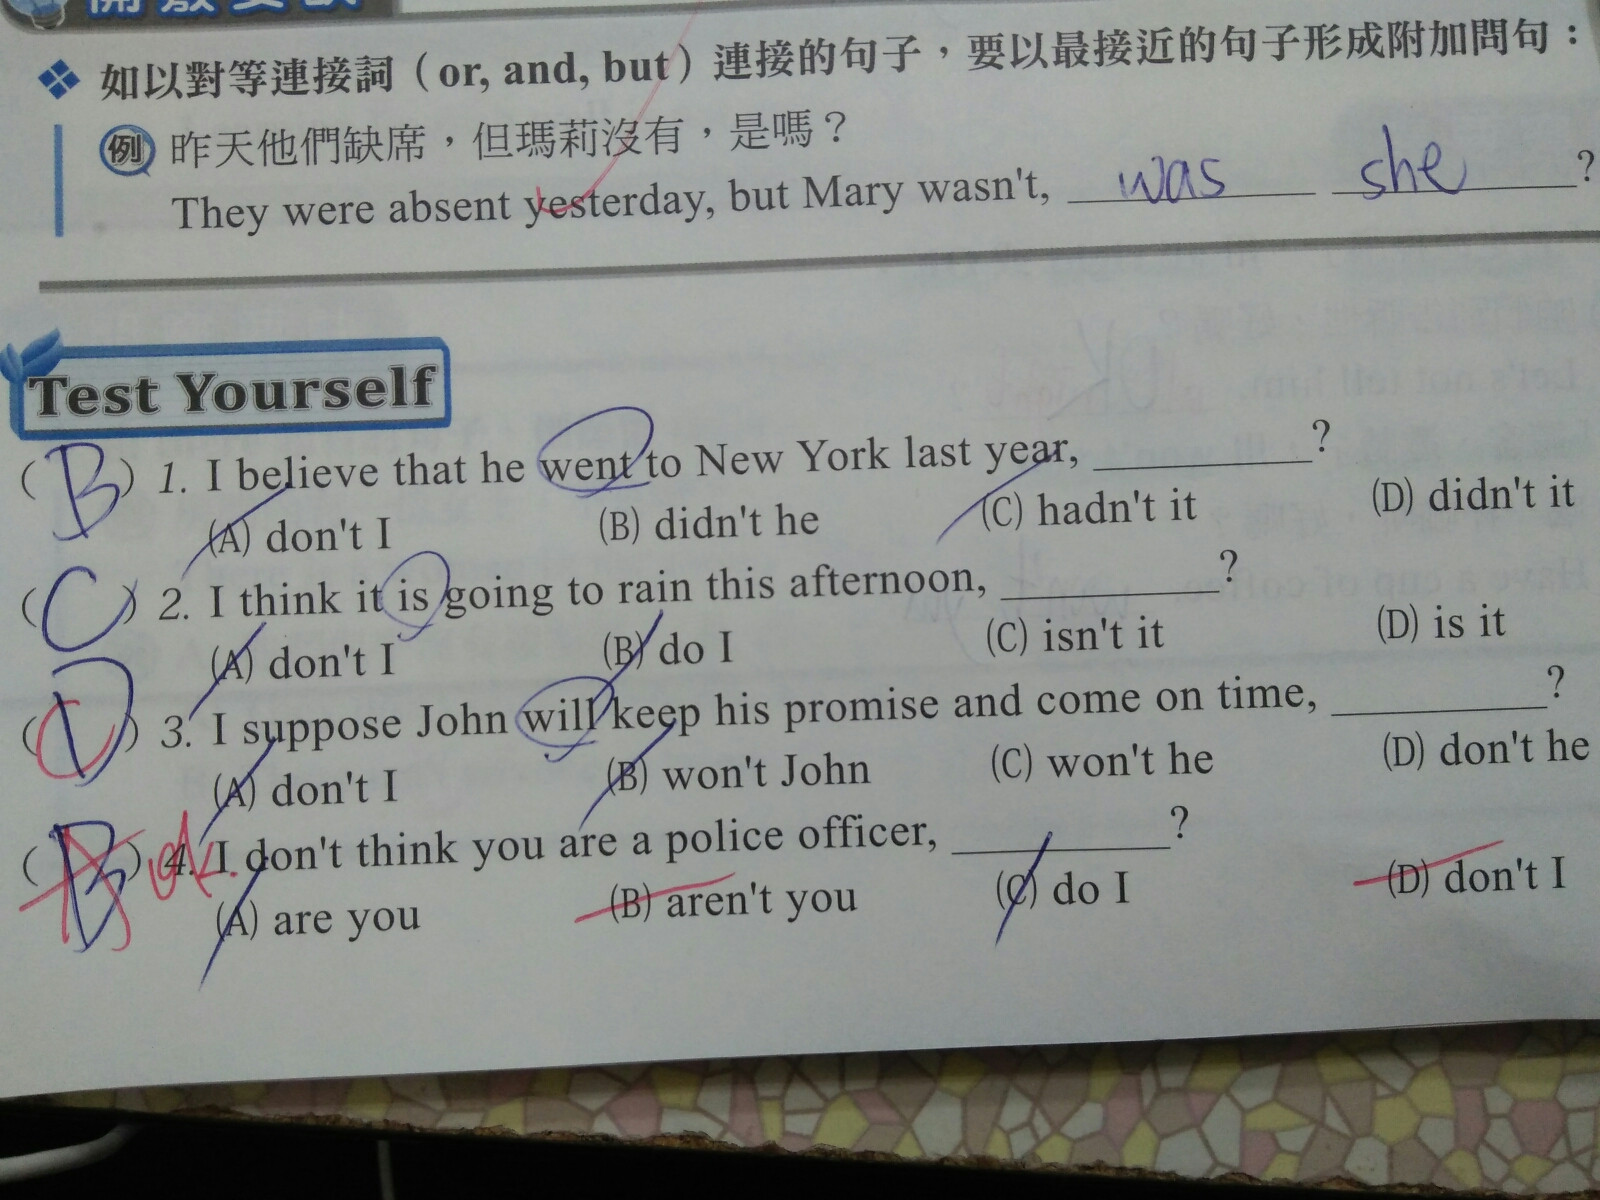 ❖ 如以對等連接詞（or, and, but）連接的句子，要以最接近的句子形成附加問句：
例 昨天他們缺席，但瑪莉沒有，是嗎？
They were absent yesterday, but Mary wasn't, was she ?
Test Yourself
( B ) 1. I believe that he went to New York last year, ________?
(A) don't I (B) didn't he (C) hadn't it (D) didn't it
( C ) 2. I think it is going to rain this afternoon, ________?
(A) don't I (B) do I (C) isn't it (D) is it
( D C ) 3. I suppose John will keep his promise and come on time, ________?
(A) don't I (B) won't John (C) won't he (D) don't he
( B A ) 4. I don't think you are a police officer, ________?
(A) are you (B) aren't you (C) do I (D) don't I